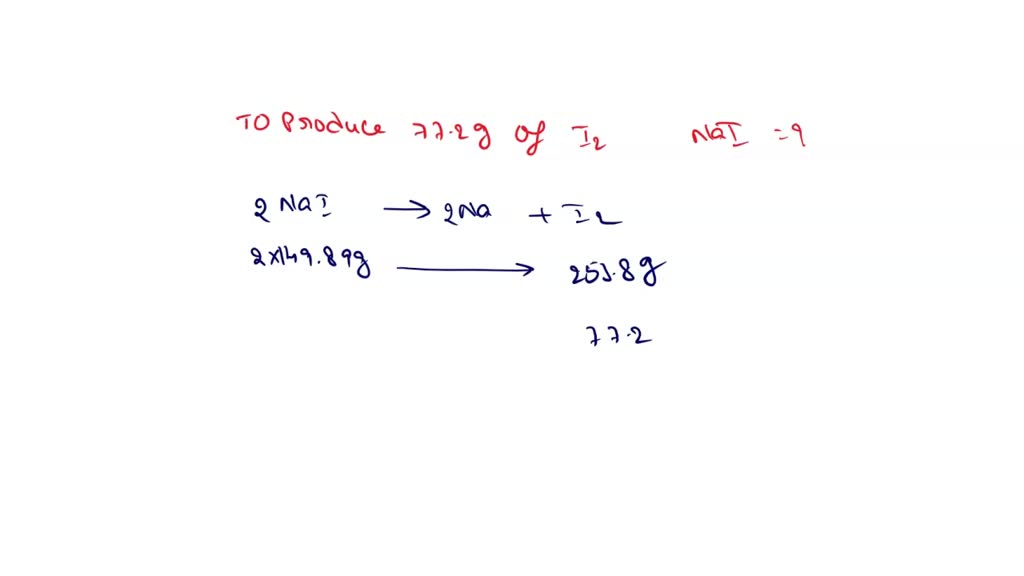 TO Produce 77.2g of I2 NaI = ?
2 NaI → 2Na + I2
2x149.89g → 253.8g
77.2